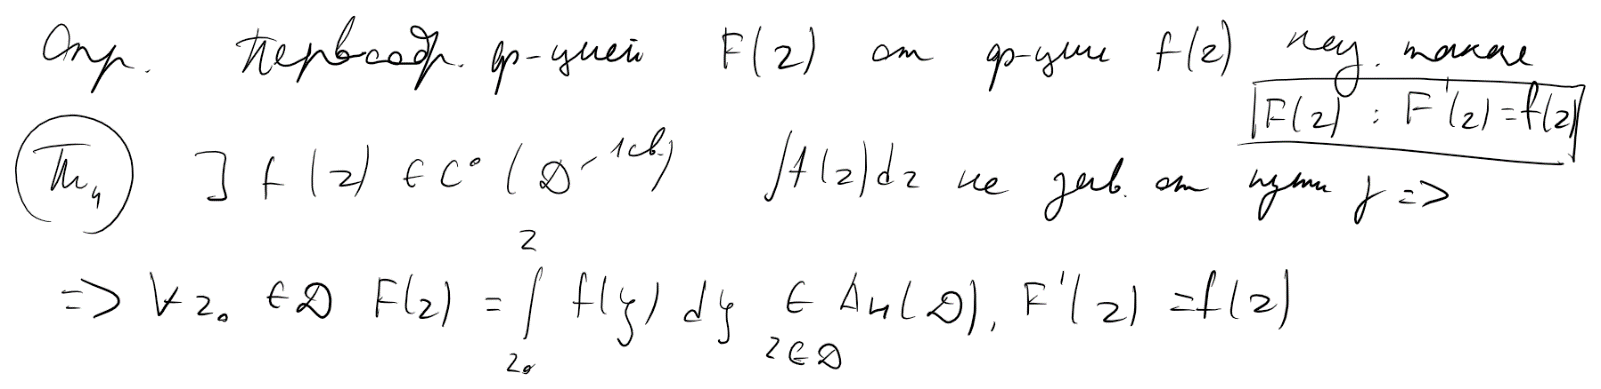 Опр. Первообр. ф-цией F(z) от ф-ции f(z) наз. такая
F(z) : F'(z)=f(z)
Th₄ ] f(z) ∈ C⁰ (D - 1св.) ∫f(z)dz не зав. от пути γ =>
=> ∀ z₀ ∈ D F(z) = ∫_{z₀}^{z} f(ζ) dζ ∈ An(D), F'(z) = f(z)
z∈D